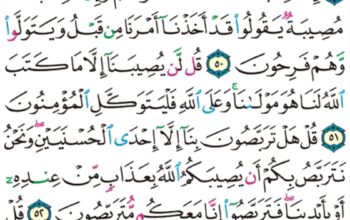 مُصِيبَةٌ يَقُولُوا۟ قَدْ أَخَذْنَآ أَمْرَنَا مِن قَبْلُ وَيَتَوَلَّوا۟
وَّهُمْ فَرِحُونَ ٥٠ قُل لَّن يُصِيبَنَآ إِلَّا مَا كَتَبَ
ٱللَّهُ لَنَا هُوَ مَوْلَىٰنَا وَعَلَى ٱللَّهِ فَلْيَتَوَكَّلِ ٱلْمُؤْمِنُونَ
٥١ قُلْ هَلْ تَرَبَّصُونَ بِنَآ إِلَّآ إِحْدَى ٱلْحُسْنَيَيْنِ ۖ وَنَحْنُ
نَتَرَبَّصُ بِكُمْ أَن يُصِيبَكُمُ ٱللَّهُ بِعَذَابٍ مِّنْ عِندِهِۦٓ
أَوْ بِأَيْدِينَا ۖ فَتَرَبَّصُوٓا۟ إِنَّا مَعَكُم مُّتَرَبِّصُونَ ٥٢ قُلْ